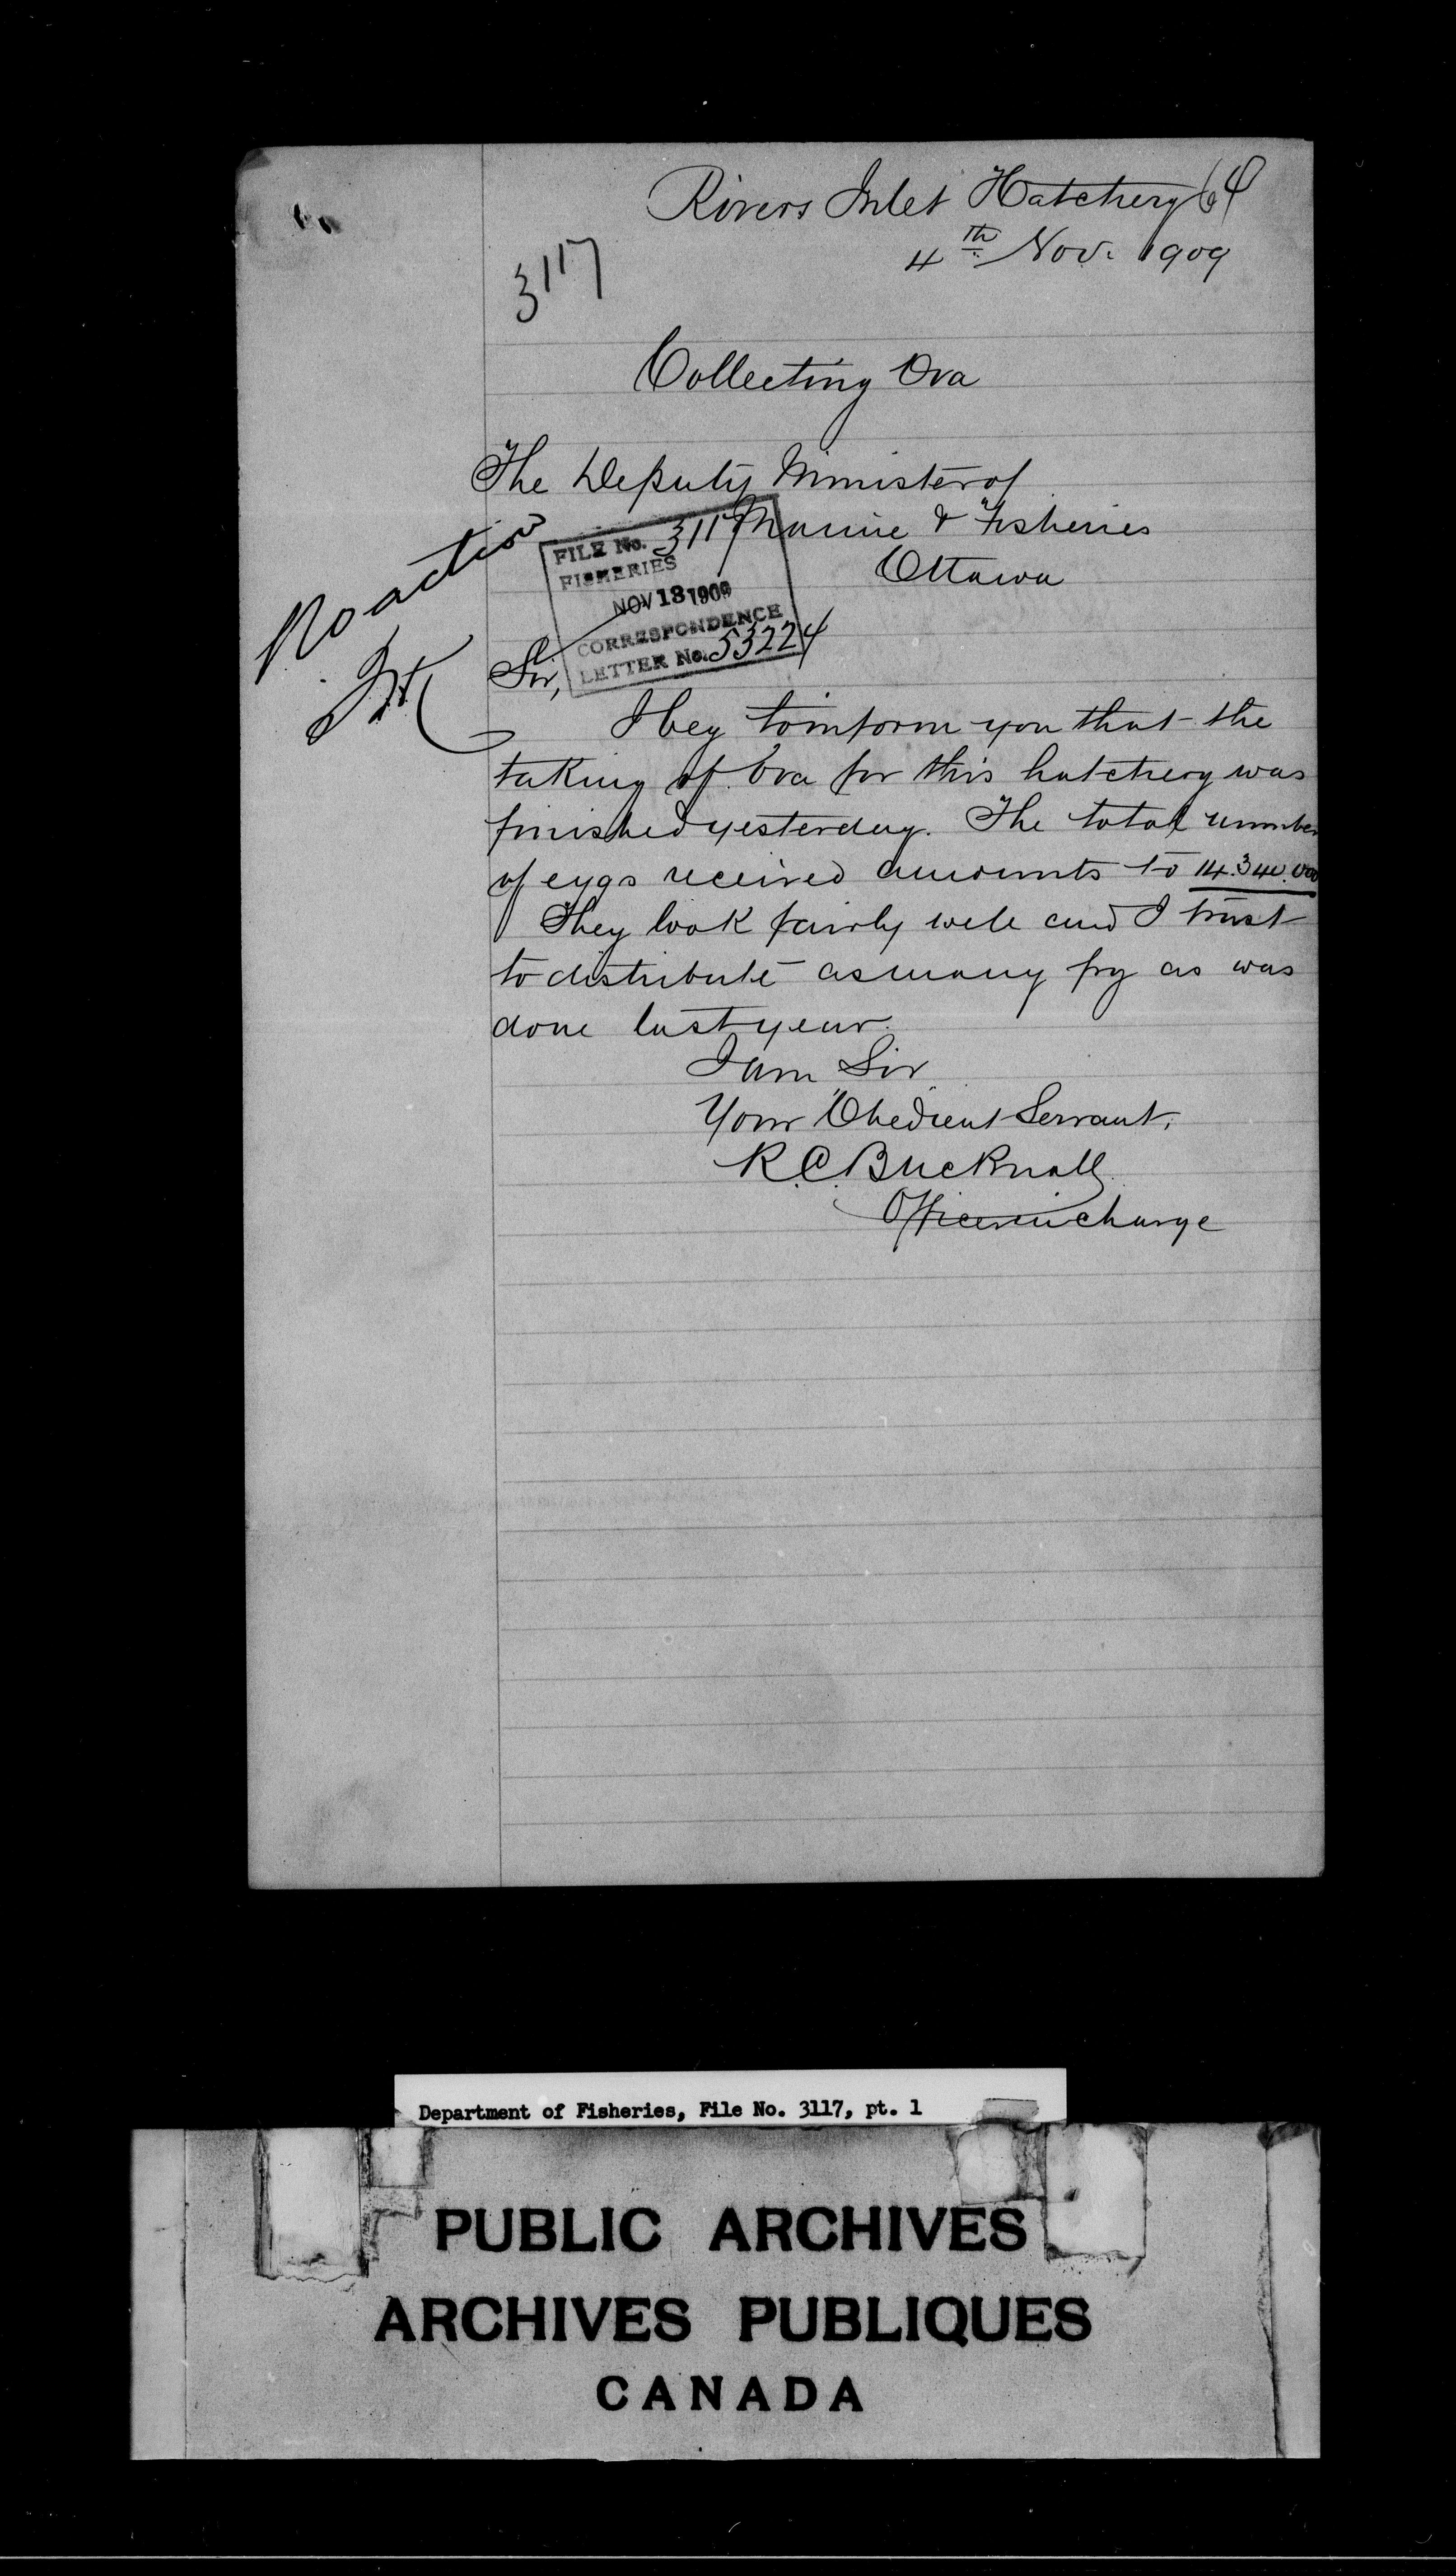 Rivers Inlet Hatchery 64
4th Nov. 1909
3117
Collecting Ova
The Deputy Minister of
Marine & Fisheries
Ottawa
No action
FILE No. 3117
FISHERIES
NOV 18 1909
CORRESPONDENCE
LETTER No. 53224
Sir,
I beg to inform you that the
taking of Ova for this hatchery was
finished yesterday. The total number
of eggs received amounts to 14.340.000
They look fairly well and I trust
to distribute as many fry as was
done last year.
I am Sir
Your Obedient Servant,
R.C. Bucknall
Officer in charge
Department of Fisheries, File No. 3117, pt. 1
PUBLIC ARCHIVES
ARCHIVES PUBLIQUES
CANADA